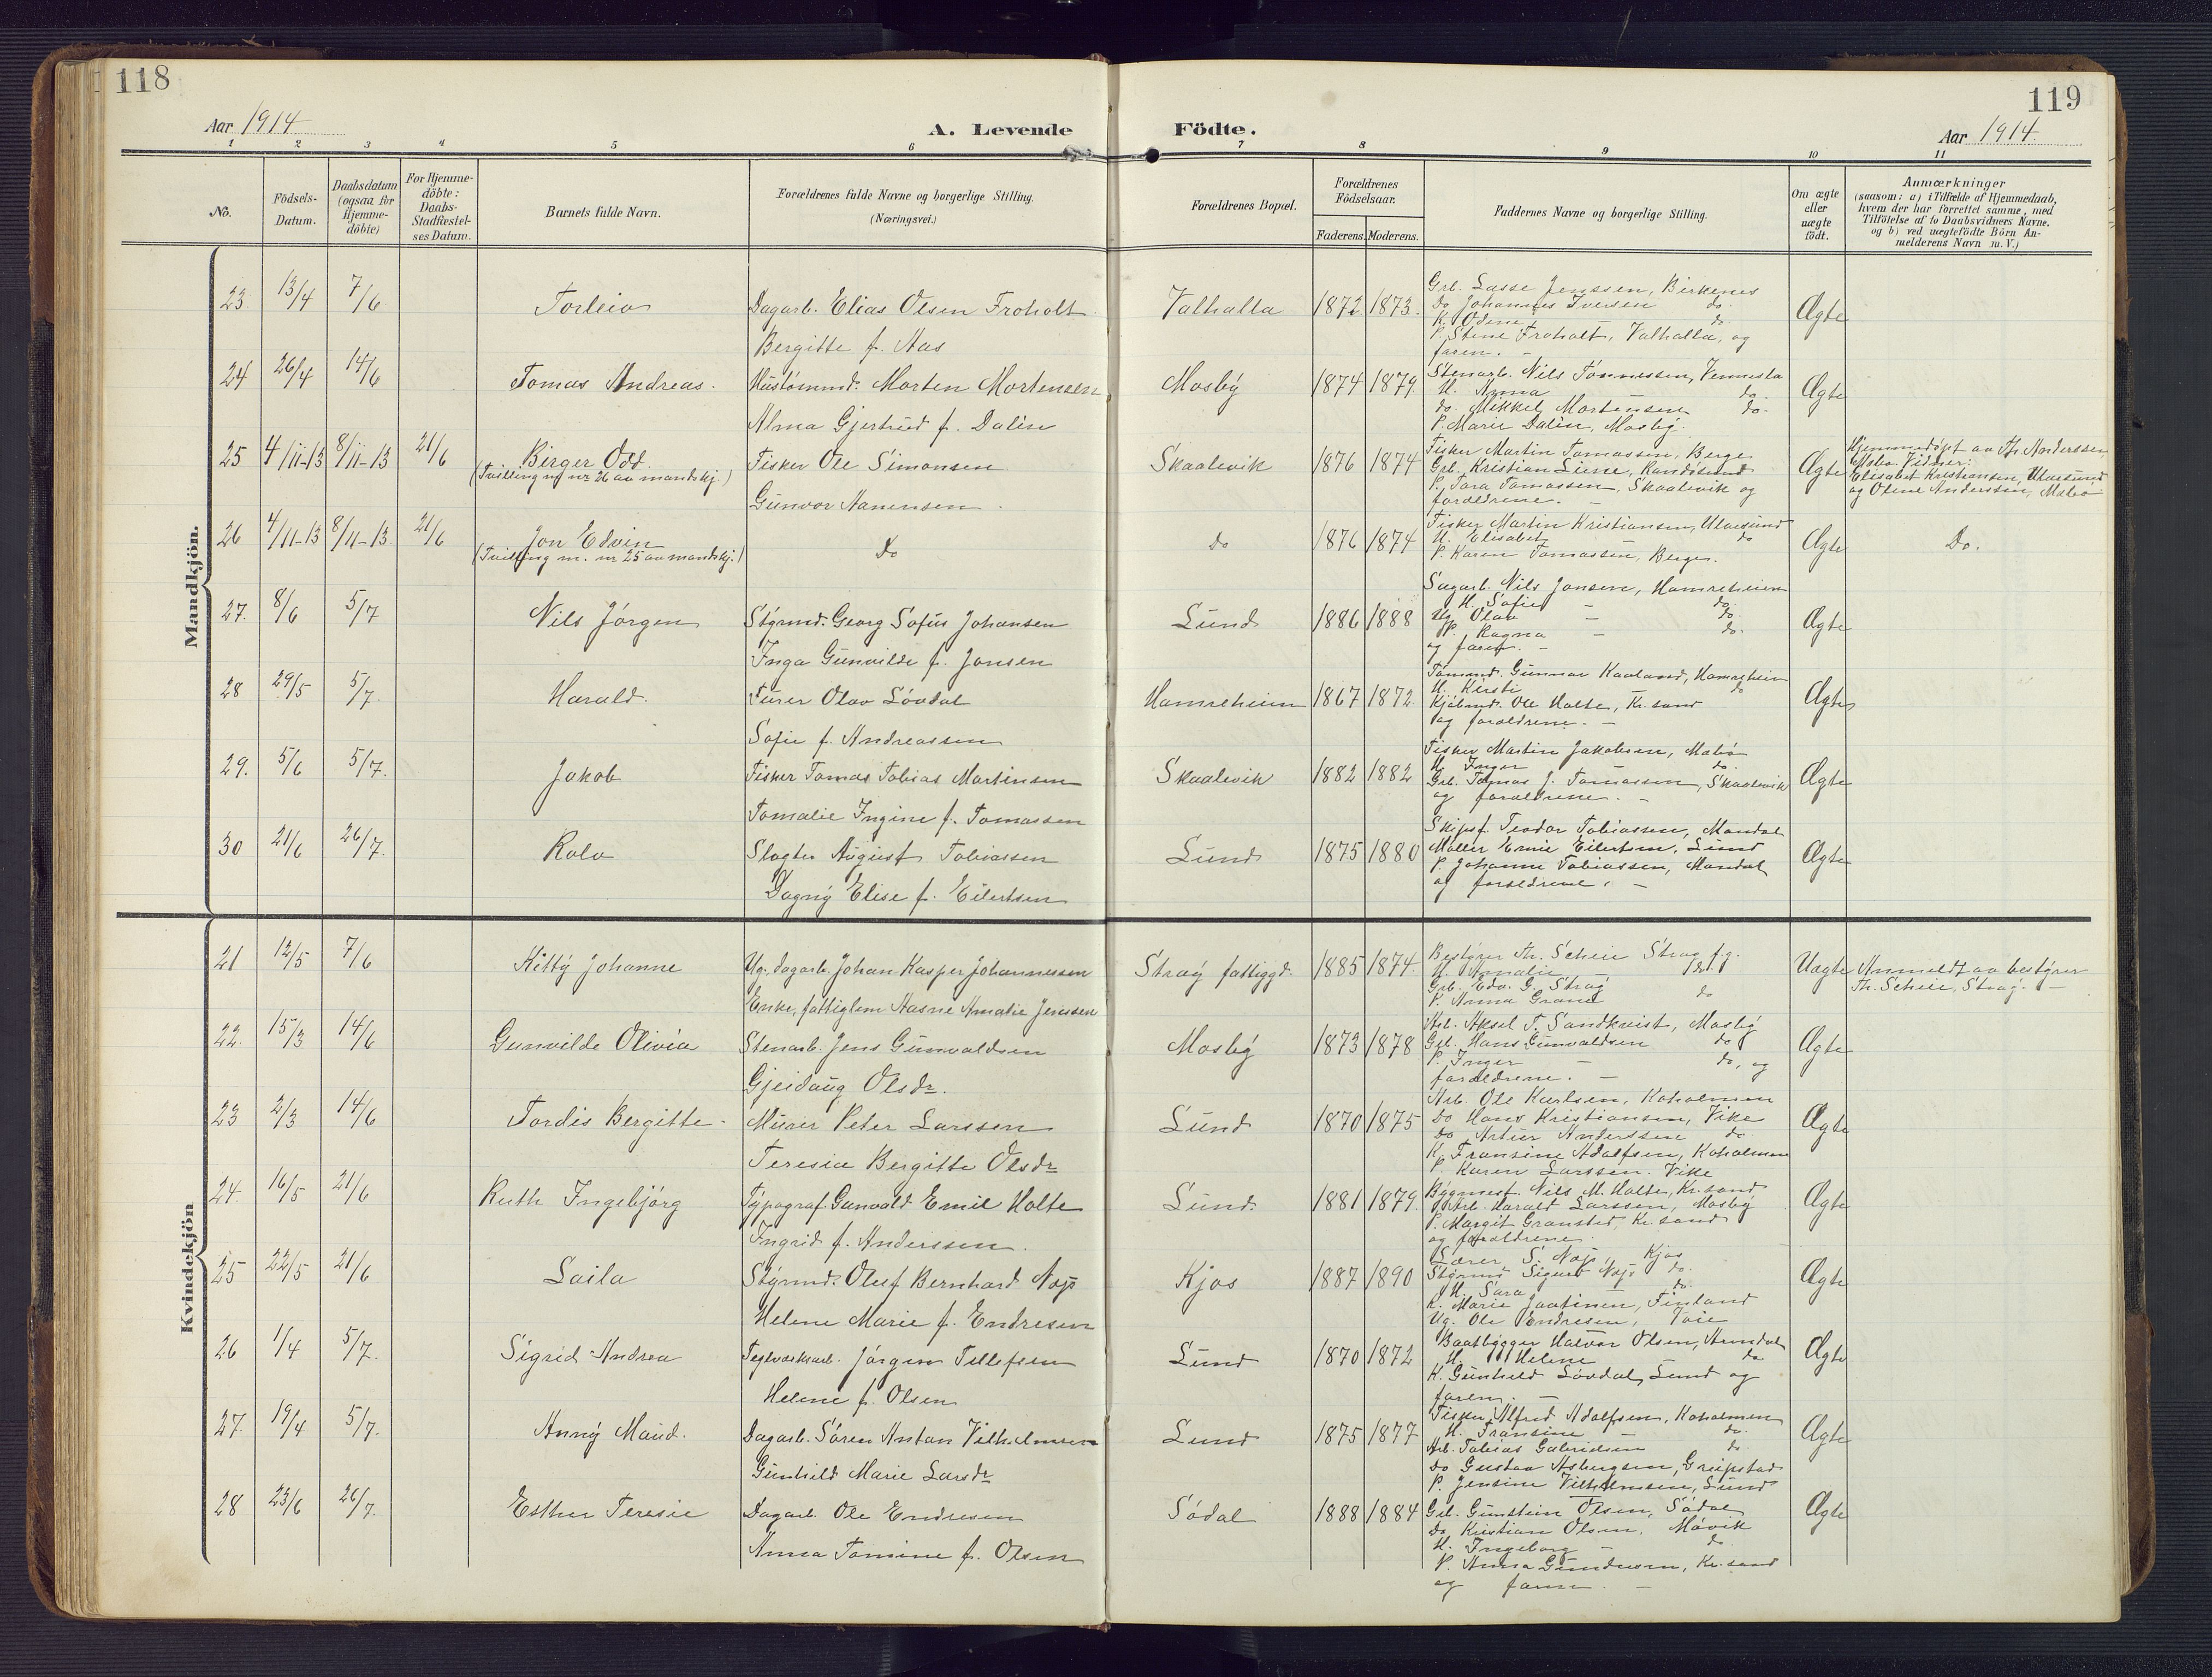 118
119
Aar 1914
A. Levende Födte.
Aar 1914.
1 2 3 4 5 6 7 8 9 10 11
No.
Födsels-
Datum.
Daabsdatum
(ogsaa for
Hjemme-
döbte)
For Hjemme-
döbte:
Daabs-
Stadfæstel-
ses Datum.
Barnets fulde Navn.
Forældrenes fulde Navne og borgerlige Stilling.
(Næringsvei.)
Forældrenes Bopæl.
Forældrenes
Födselsaar.
Faderens. Moderens.
Faddernes Navne og borgerlige Stilling.
Om ægte
eller
uægte
födt.
Anmærkninger
(saasom: a) i Tilfælde af Hjemmedaab,
hvem der har forrettet samme, med
Tilföielse af to Daabsvidners Navne.
og b) ved uægtefödte Börn An-
melderens Navn m. V.)
Mandkjön.
23. 13/4 7/6 Torleiv
Dagarb. Elias Olsen Froholt
Bergitte f. Aas
Valhalla 1872 1873.
Grb. Lasse Jenssen, Birkenes
do Johannes Iversen do.
K. Odine do
P. Stine Froholt, Valhalla, og
faren. -
Ægte
24 26/4 14/6 Tomas Andreas.
Hustømmd. Morten Mortensen
Alma Gjertrud f. Dalin
Mosby 1874 1879
Stenarb. Nils Tønnessen, Vennesla
H. Anna do.
do. Mikkel Mortensen do.
P. Marie Dalin, Mosby.
Ægte
25 4/11-13 8/11-13 21/6 Birger Odd.
(Tvilling m nr 26 av mandskj.)
Fisker Ole Simonsen
Gunvor Aanensen
Skaalevik 1876 1874
Fisker Martin Tomassen, Berge
Grb. Kristian Liene, Randøsund
P. Tara Tomassen, Skaalevik og
forældrene. -
Ægte
Hjemmedøpt av Th. Anderssen,
Mæbø. Vidner:
Elisabet Kristiansen, Ulvøsund
og Oline Anderssen, Mæbø
26 4/11-13 8/11-13 21/6 Jon Edvin
(Tvilling m. nr 25 av mandskj.)
Do
do 1876 1874
Fisker Martin Kristiansen, Ulvøsund
H. Elisabet do
P. Karen Tomassen, Berge.
Ægte
Do.
27. 8/6 5/7 Nils Jørgen
Stýrmd. Georg Sofus Johansen
Inga Gunvilde f. Jansen
Lund 1886 1888
Sagarb. Nils Jansen, Hamreheien
H. Sofie - do.
Ug. Olav - do.
P. Ragna - do.
og faren. -
Ægte
28 29/5 5/7. Harald.
Furer Olav Løvdal
Sofie f. Andreassen
Hamreheien 1867 1872
Tømmd. Gunnar Kaaland, Hamreheien
H. Kirsti - do
Kjølmd. Ole Holte, Kr.sand
og forældrene. -
Ægte
29. 5/6 5/7. Jakob
Fisker Tomas Tobias Martinsen
Tomalie Ingine f. Tomassen
Skaalevik 1882 1882
Fisker Martin Jakobsen, Mæbø
H. Inger do.
Grb. Tomas J. Tomassen, Skaalevik
og forældrene. -
Ægte
30 21/6 26/7. Rolv
Slagter August Tobiassen
Dagný Elise f. Eilertsen
Lund 1875 1880
Skipsf. Teodor Tobiassen, Mandal
Møller Emil Eilertsen, Lund
P. Johanne Tobiassen, Mandal
og forældrene. -
Ægte
Kvindekjön
21 12/5 7/6 Kitty Johanne
Ug. dagarb. Johan Kasper Johannessen
Enke, fattiglem Aasne Amalie Jenssen
Straý fattiggd. 1885 1874.
Bestýrer Th. Scheie Straý f.g.
H. Amalie - do.
Grb. Edv. G. Straý
P. Anna Grane do
Uægte
Anmeldt av bestýrer
Th. Scheie, Straý. -
22. 15/3 14/6 Gunvilde Olivia
Stenarb. Jens Gunvaldsen
Gjeidaug Olsdr.
Mosbý 1873 1878
Arb. Aksel T. Sandkvist, Mosbý
Grb. Hans Gunvaldsen do
P. Inger - do, og
forældrene. -
Ægte
23 2/3 14/6 Tordis Bergitte.
Murer Peter Larssen
Teresia Bergitte Olsdr
Lund 1870 1875
Arb. Ole Karlsen, Koholmen
do Hans Kristiansen, Vike
do Artur Anderssen do.
K. Fransine Adolfsen, Koholmen
P. Karen Larssen. Vike
Ægte
24. 16/5 21/6 Ruth Ingebjørg
Typograf Gunvald Emil Holte
Ingrid f. Anderssen.
Lund 1881 1879.
Býgmest. Nils M. Holte, Kr.sand
Arb. Harald Larssen, Mosbý
P. Margit Gransted, Kr.sand
og forældrene.
Ægte
25 22/5 21/6 Laila
Stýrmd. Oluf Bernhard Næss
Helene Marie f. Endresen
Kjos 1887 1890
Lærer S. Næss, Kjos
Stýrmd Sigurd Næss do.
H. Sara - do.
K. Marie Jaatinen, Finland
Ug. Ole Endresen, Voie
Ægte
26 1/4 5/7. Sigrid Andrea
Teglverksarb. Jørgen Tellefsen
Helene f. Olsen
Lund 1870 1872
Baatbýgger Halvor Olsen, Arendal
H. Helene do
K. Gunhild Løvdal, Lund og
faren. -
Ægte
27. 19/4 5/7. Anný Maud.
Dagarb. Søren Antan Vilhelmsen
Gunhild Marie Larsdr
Lund 1875 1877
Fisker Alfred Adolfsen, Koholmen
H. Fransine - do.
Arb. Tobias Gabrielsen do
do Gustav Asbugsen, Greipstad
P. Jensine Vilhelmsen, Lund
Ægte
28 23/6 26/7. Esther Teresie
Dagarb. Ole Endresen
Anna Tomine f. Olsen
Sødal 1888 1884
Grb. Gunstein Olsen, Sødal
do Kristian Olsen, Møvik
H. Ingeborg - do
P. Anna Gundersen, Kr.sand
og faren. -
Ægte